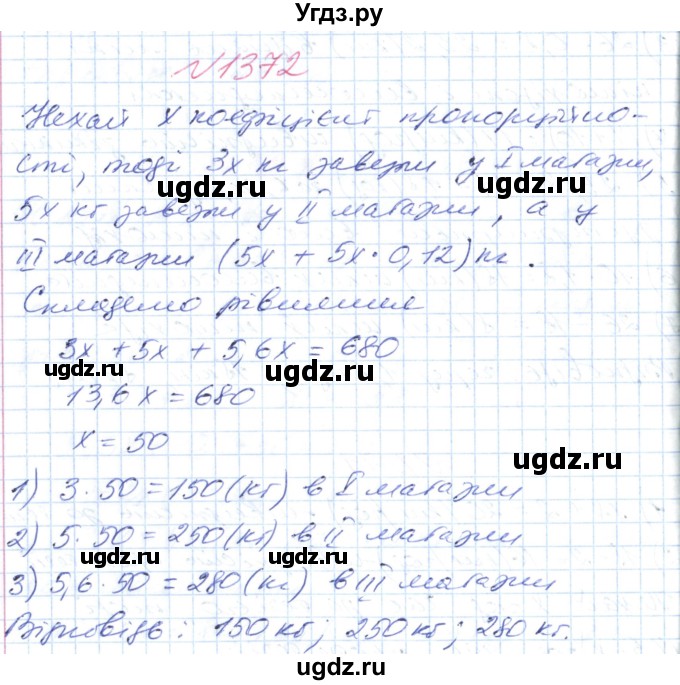 Угдз.ру
№1372
Нехай х коефіцієнт пропорційно-
сті, тоді 3х кг завезли у I магазин,
ugdz.ru ugdz.ru
5х кг завезли у II магазин, а у
III магазин (5х + 5х · 0,12) кг.
ugdz.ru
Складемо рівняння
3х + 5х + 5,6х = 680
ugdz.ru ugdz.ru
13,6х = 680
х = 50
ugdz.ru
1) 3 · 50 = 150 (кг) в I магазин
2) 5 · 50 = 250 (кг) в II магазин
ugdz.ru ugdz.ru
3) 5,6 · 50 = 280 (кг) в III магазин
Відповідь: 150 кг; 250 кг; 280 кг.
ugdz.ru